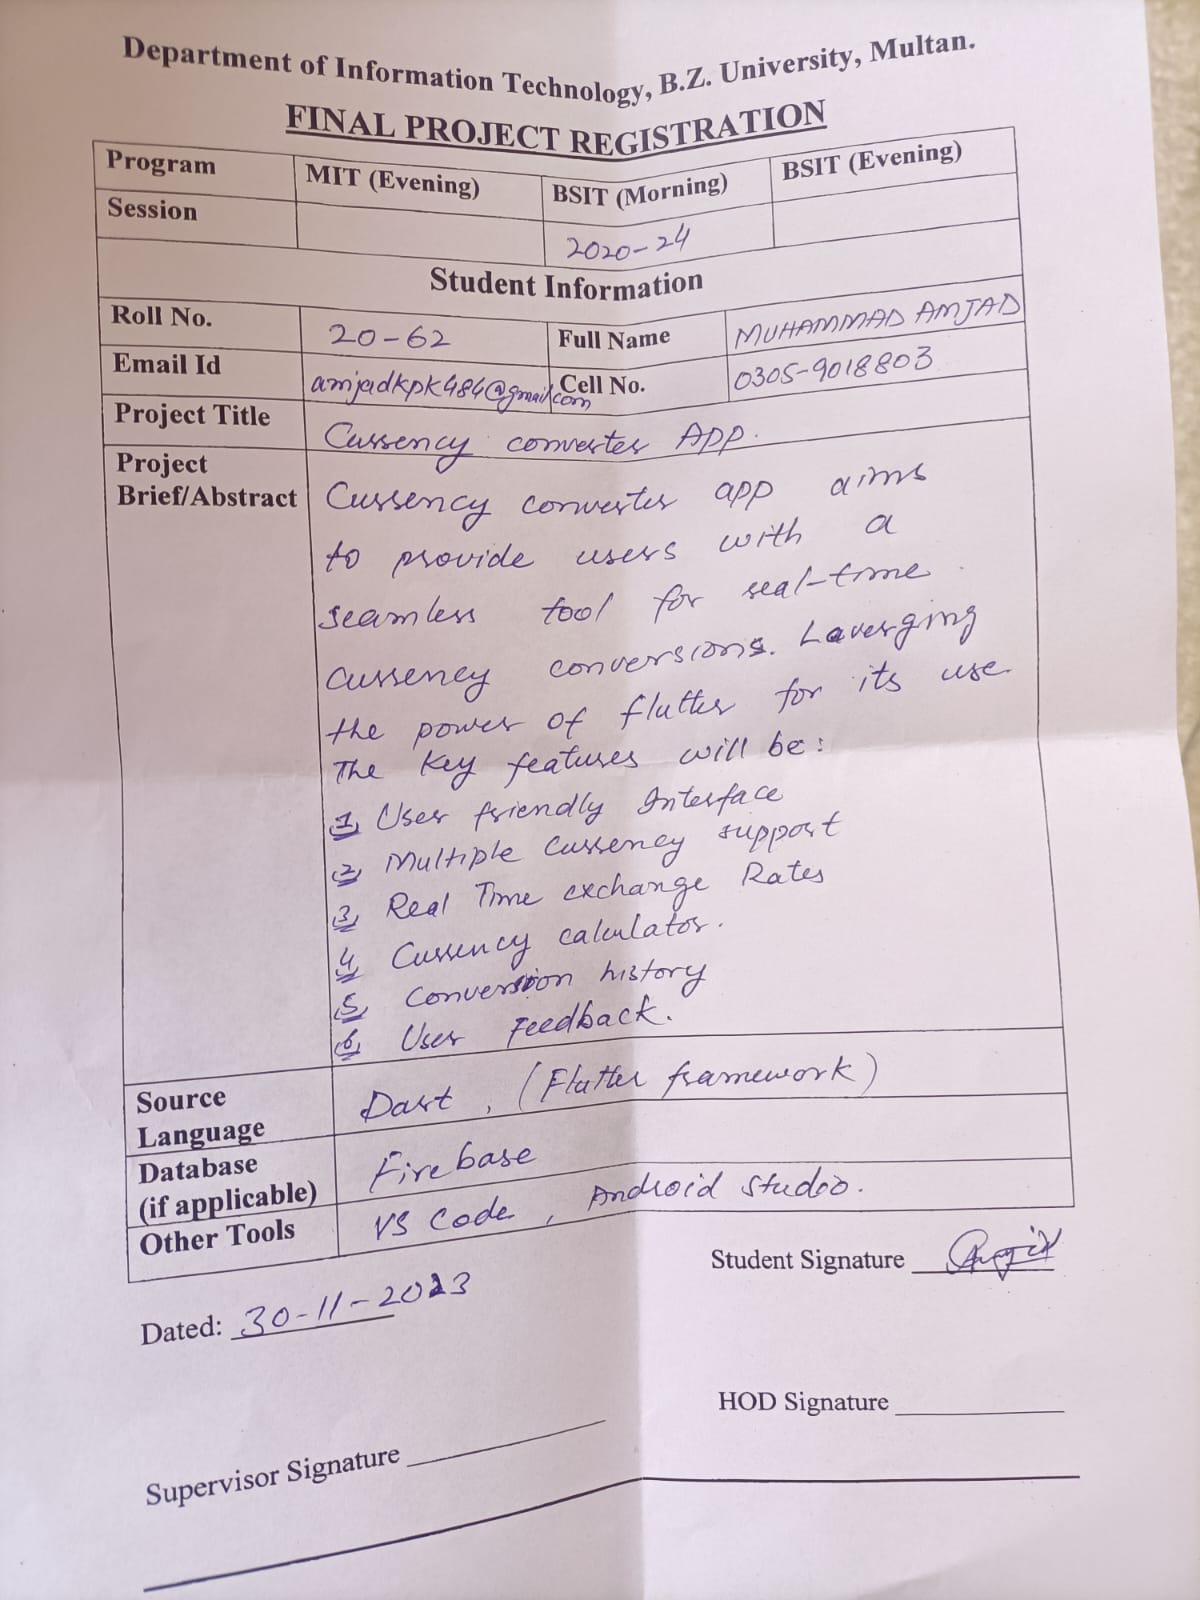 Department of Information Technology, B.Z. University, Multan.
FINAL PROJECT REGISTRATION
Program MIT (Evening) BSIT (Morning) BSIT (Evening)
Session 2020-24
Student Information
Roll No. 20-62 Full Name MUHAMMAD AMJAD
Email Id amjadkpk484@gmail.com Cell No. 0305-9018803
Project Title Currency converter App.
Project
Brief/Abstract Currency converter app aims
to provide users with a
seamless tool for real-time
currency conversions. Laverging
the power of flutter for its use.
The key features will be:
1, User friendly Interface
2, Multiple currency support
3, Real Time exchange Rates
4, Currency calculator.
5, Conversion history
6, User Feedback.
Source
Language Dart, (Flutter framework)
Database
(if applicable) Firebase
Other Tools VS Code, Android Studio.
Student Signature
Dated: 30-11-2023
HOD Signature
Supervisor Signature